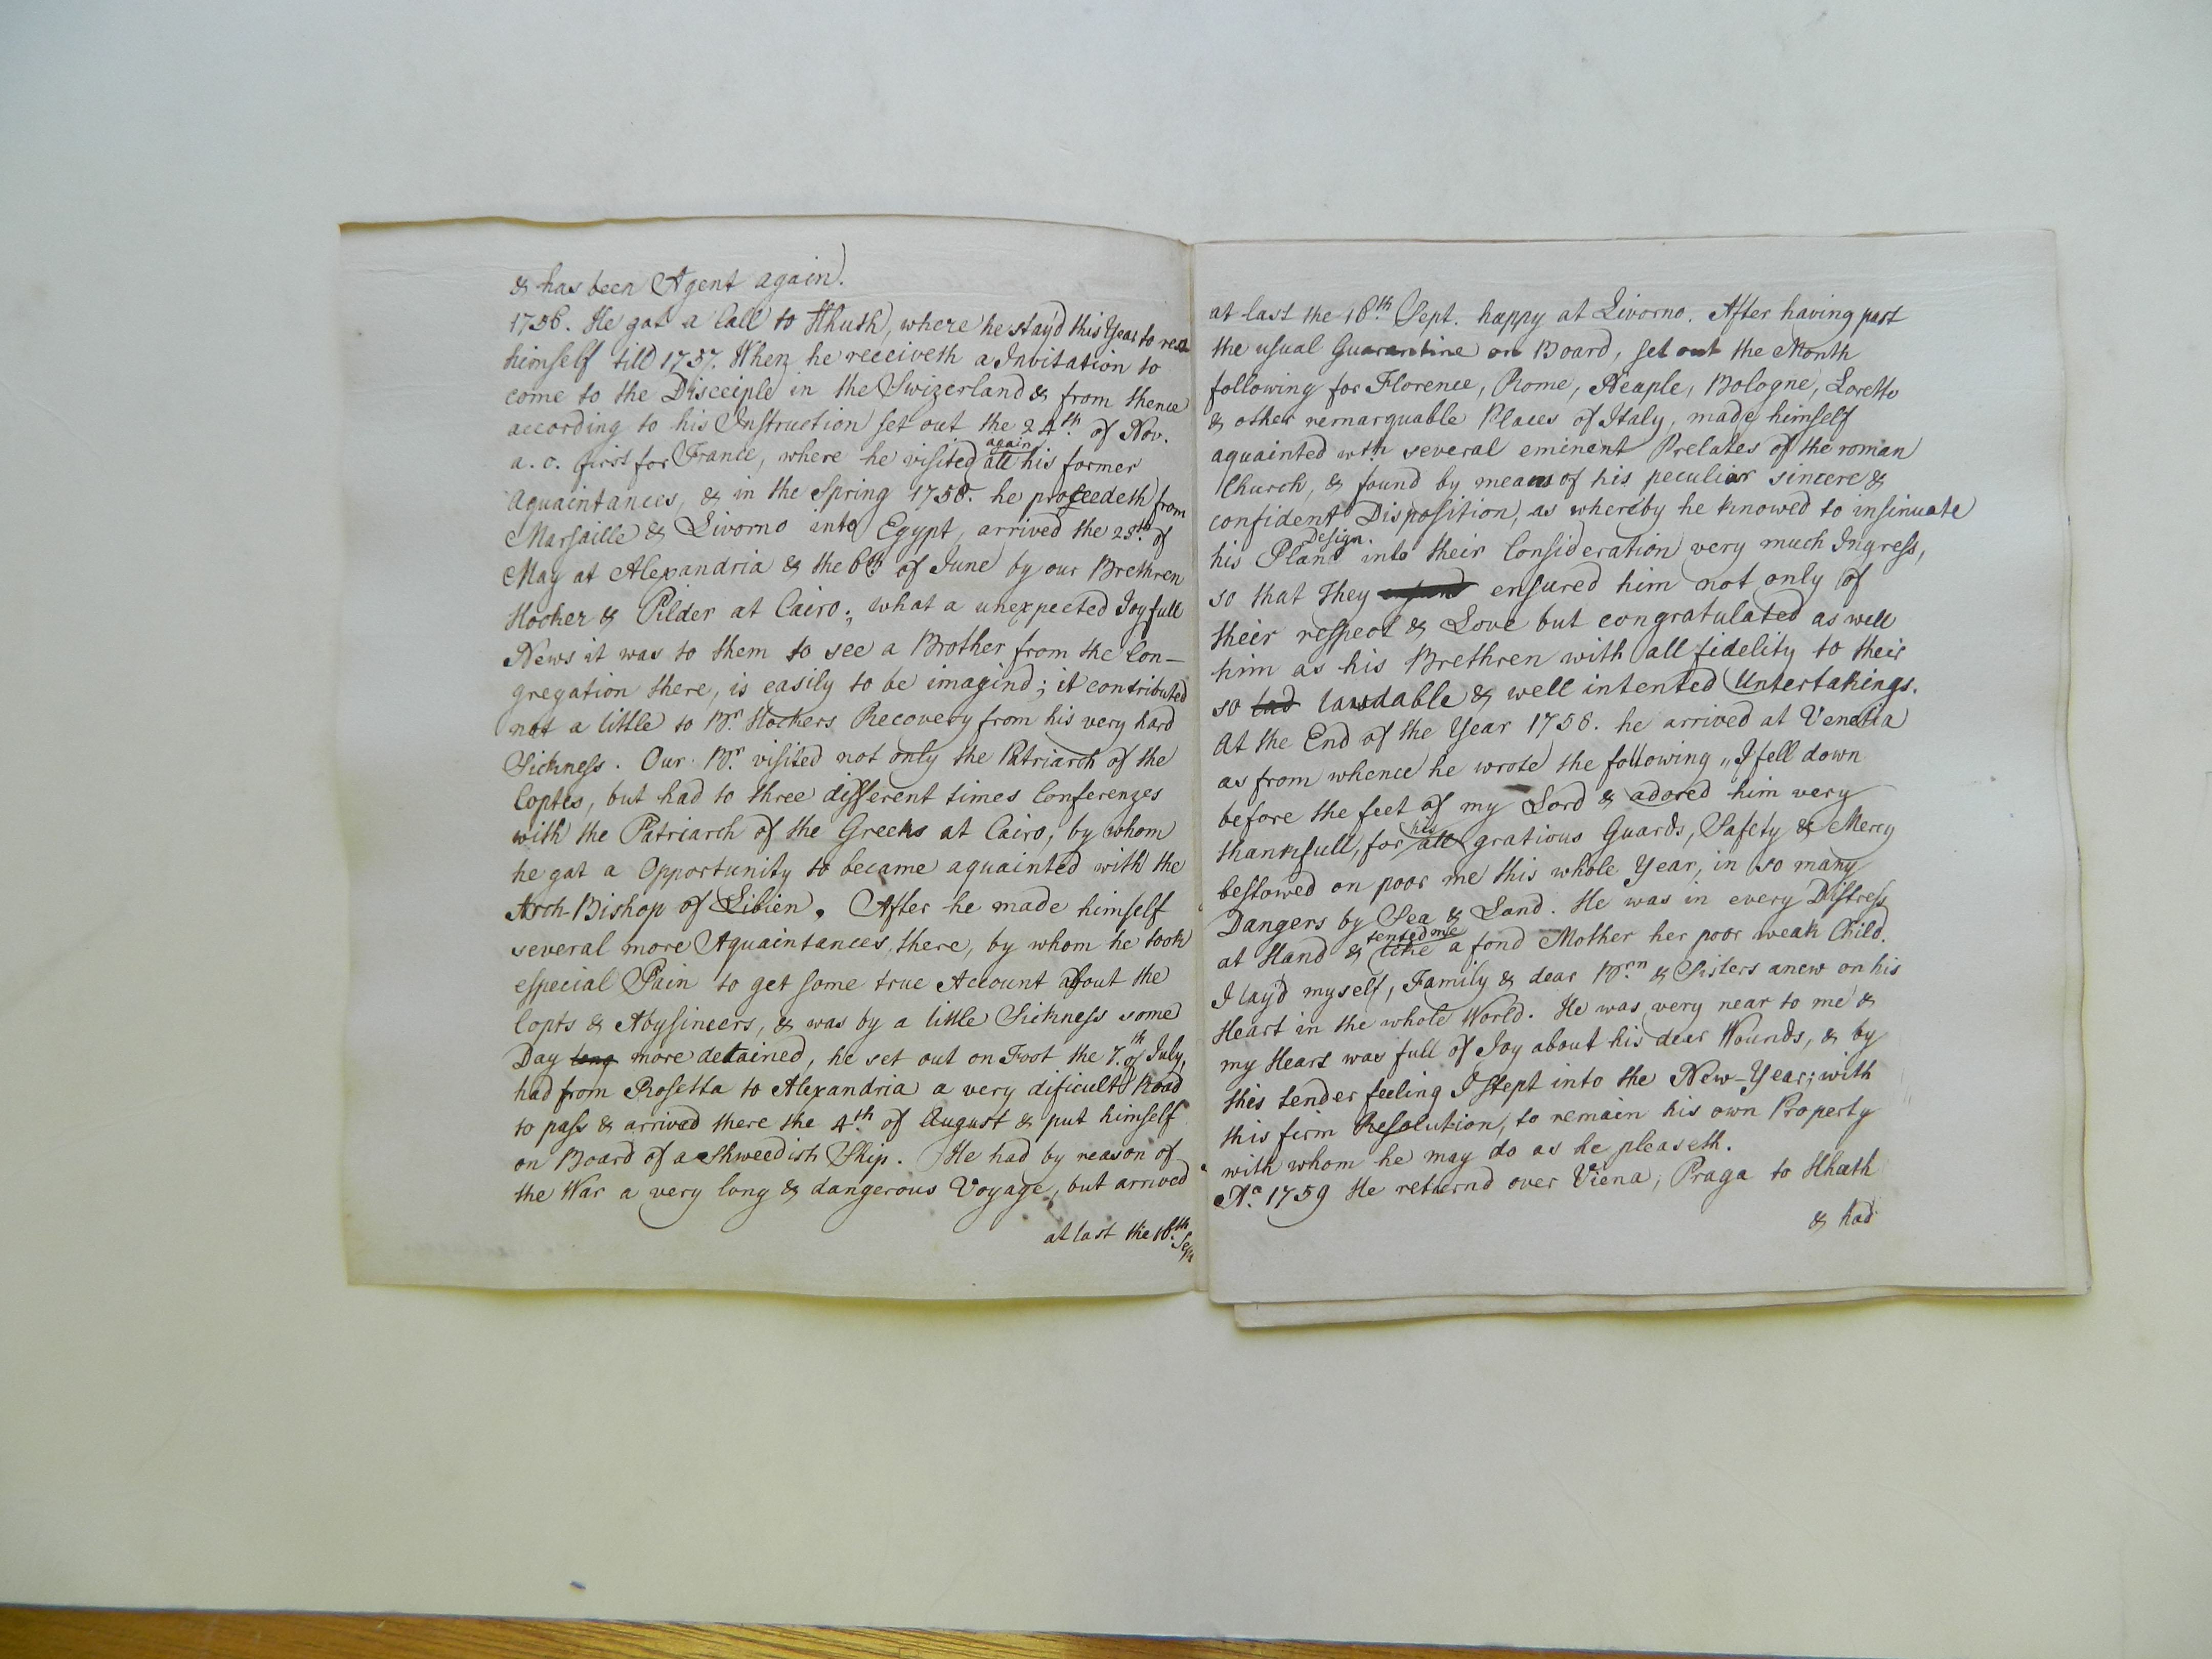 & has been Agent again).
1756. He got a Call to Hhuth, where he stay'd this Year to rest
himself till 1757. When he receiveth a Invitation to
come to the Disceciple in the Swizerland & from thence
according to his Instruction set out the 24th. of Nov.
a. o. first for France, where he visited again all his former
Aquaintances, & in the Spring 1758. he proceedeth from
Marsaille & Livorno into Egypt, arrived the 25th. of
May at Alexandria & the 6th. of June by our Brethren
Hocker & Pilder at Cairo; what a unexpected Joyfull
News it was to them to see a Brother from the Con-
gregation there, is easily to be imagind; it contributed
not a little to Br. Hockers Recovery from his very hard
Sickness. Our Br. visited not only the Patriarch of the
Coptes, but had to three different times Conferenzes
with the Patriarch of the Greeks at Cairo, by whom
he got a Opportunity to became aquainted with the
Arch-Bishop of Libien. After he made himself
several more Aquaintances there, by whom he took
especial Pain to get some true Account about the
Copts & Abysineers, & was by a little Sickness some
Day long more detained, he set out on Foot the 7.th of July,
had from Rosetta to Alexandria a very dificult Road
to pass & arrived there the 4th. of August & put himself
on Board of a Shweedish Ship. He had by reason of
the War a very long & dangerous Voyage, but arrived
at last the 16th. Sept
at last the 16th. Sept. happy at Livorno. After having past
the usual Guarantine on Board, set out the Month
following for Florence, Rome, Neaple, Bologne, Loretto
& other remarquable Places of Italy, made himself
aquainted wth several eminent Prelates of the roman
Church, & found by means of his peculiar sincere &
confident Disposition, as whereby he knowed to insinuate
his Pland design. into their Consideration very much Ingress,
so that They ensured him not only of
their respect & Love but congratulated as well
him as his Brethren with all fidelity to their
so lad lawdable & well intented Untertakings.
At the End of the Year 1758. he arrived at Venetia
as from whence he wrote the following „I fell down
before the feet of my Lord & adored him very
thankfull, for his all gratious Guards, Safety & Mercy
bestowed on poor me this whole Year, in so many
Dangers by Sea & Land. He was in every Distress
at Hand & tented me like a fond Mother her poor weak Child.
I lay'd myself, Family & dear Brn. & Sisters anew on his
Heart in the whole World. He was very near to me &
my Heart was full of Joy about his dear Wounds, & by
this tender feeling I stept into the New-Year; with
this firm Resolution, to remain his own Property
with whom he may do as he pleaseth.
Ao. 1759 He returnd over Viena, Praga to Hhuth
& had